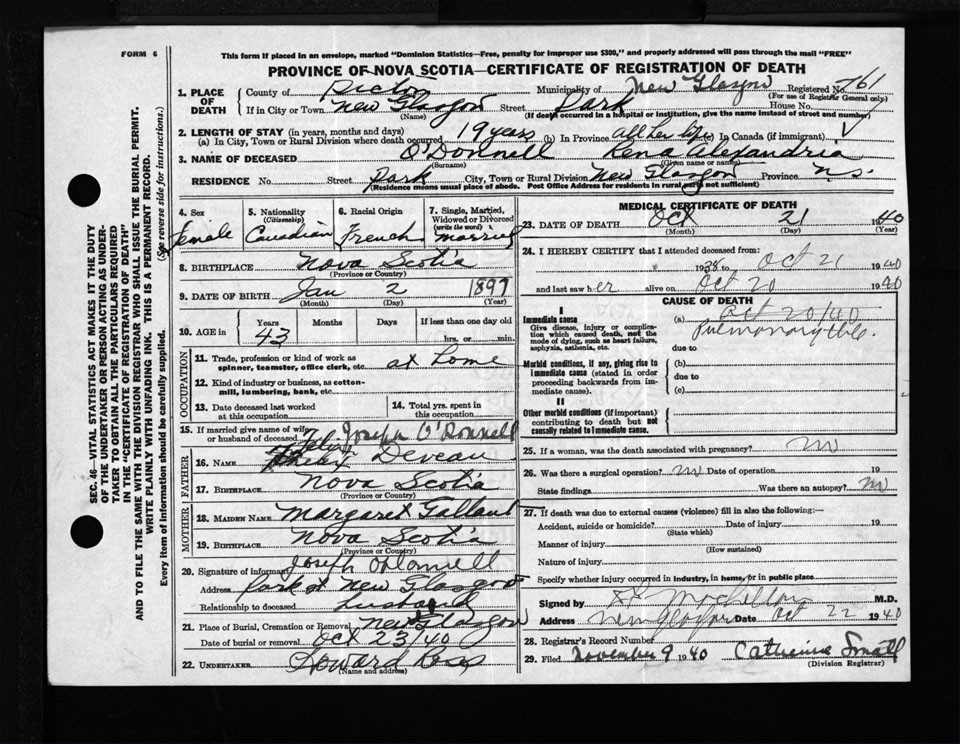 FORM 6
This form if placed in an envelope, marked "Dominion Statistics—Free, penalty for improper use $300," and properly addressed will pass through the mail "FREE"
PROVINCE OF NOVA SCOTIA—CERTIFICATE OF REGISTRATION OF DEATH
1. PLACE OF DEATH County of Pictou Municipality of New Glasgow Registered No. 761
(For use of Registrar General only)
If in City or Town New Glasgow Street Park House No.
(Name) (If death occurred in a hospital or institution, give the name instead of street and number)
2. LENGTH OF STAY (in years, months and days)
(a) In City, Town or Rural Division where death occurred 19 years (b) In Province all her life (c) In Canada (if immigrant)
3. NAME OF DECEASED O'Donnell Rena Alexandria
(Surname) (Given name or names)
RESIDENCE No. Street Park City, Town or Rural Division New Glasgow Province N.S.
(Residence means usual place of abode. Post Office Address for residents in rural parts not sufficient)
4. Sex female
5. Nationality (Citizenship) Canadian
6. Racial Origin French
7. Single, Married, Widowed or Divorced (write the word) Married
8. BIRTHPLACE Nova Scotia
(Province or Country)
9. DATE OF BIRTH Jan 2 1897
(Month) (Day) (Year)
10. AGE in Years 43 Months Days If less than one day old hrs. or min.
OCCUPATION
11. Trade, profession or kind of work as spinner, teamster, office clerk, etc. at Home
12. Kind of industry or business, as cotton-mill, lumbering, bank, etc.
13. Date deceased last worked at this occupation
14. Total yrs. spent in this occupation
15. If married give name of wife or husband of deceased Joseph O'Donnell
FATHER
16. NAME Deveau
17. BIRTHPLACE Nova Scotia
(Province or Country)
MOTHER
18. MAIDEN NAME Margaret Gallant
19. BIRTHPLACE Nova Scotia
(Province or Country)
20. Signature of informant Joseph O'Donnell
Address Park st New Glasgow
Relationship to deceased husband
21. Place of Burial, Cremation or Removal New Glasgow
Date of burial or removal Oct 23/40
22. UNDERTAKER Howard Ross
(Name and address)
MEDICAL CERTIFICATE OF DEATH
23. DATE OF DEATH Oct 21 1940
(Month) (Day) (Year)
24. I HEREBY CERTIFY that I attended deceased from:
1938 to Oct 21 1940
and last saw her alive on Oct 20 1940
CAUSE OF DEATH
Oct 20/40
I
Immediate cause (a) Pulmonary tbc.
Give disease, injury or complication which caused death, not the mode of dying, such as heart failure, asphyxia, asthenia, etc.
due to
Morbid conditions, if any, giving rise to immediate cause (stated in order proceeding backwards from immediate cause). (b)
due to
(c)
II
Other morbid conditions (if important) contributing to death but not causally related to immediate cause.
25. If a woman, was the death associated with pregnancy? no
26. Was there a surgical operation? no Date of operation 19
State findings Was there an autopsy? no
27. If death was due to external causes (violence) fill in also the following:—
Accident, suicide or homicide? Date of injury 19
(State which)
Manner of injury
(How sustained)
Nature of injury
Specify whether injury occurred in industry, in home, or in public place
Signed by M.D.
Address New Glasgow Date Oct 22 1940
28. Registrar's Record Number
29. Filed November 9 1940 Catherine Small
(Division Registrar)
SEC. 46—VITAL STATISTICS ACT MAKES IT THE DUTY OF THE UNDERTAKER OR PERSON ACTING AS UNDERTAKER TO OBTAIN ALL THE PARTICULARS REQUIRED IN THE "CERTIFICATE OF REGISTRATION OF DEATH" AND TO FILE THE SAME WITH THE DIVISION REGISTRAR WHO SHALL ISSUE THE BURIAL PERMIT.
WRITE PLAINLY WITH UNFADING INK. THIS IS A PERMANENT RECORD.
Every item of information should be carefully supplied. (See reverse side for instructions.)